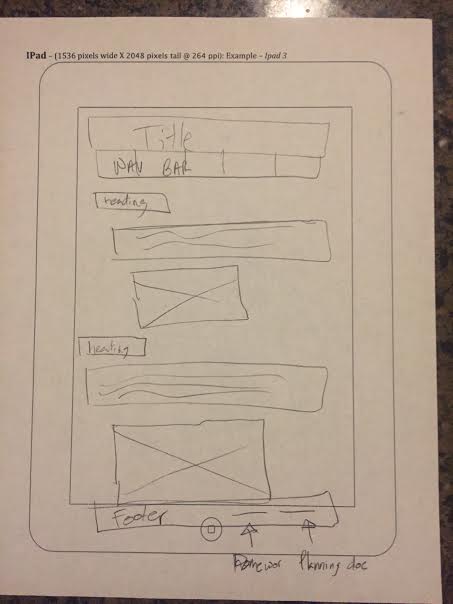 IPad – (1536 pixels wide X 2048 pixels tall @ 264 ppi): Example – Ipad 3
Title
NAV BAR
heading
heading
Footer
Planning doc